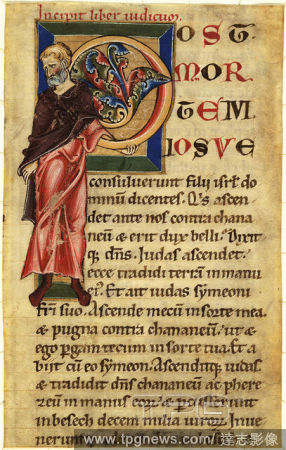 Incipit liber iudicum.
POST
MOR
TEM
IOSVE
consuluerunt filii isrl' do
minum dicentes. Q's ascen
det ante nos contra chana
neu & erit dux belli. Dixit
q; dns. Iudas ascendet:
ecce tradidi terram in manu
ei'. Et ait iudas symeoni
fri suo. Ascende mecu in sorte mea.
& pugna contra chananeu. ut &
ego pgam tecum in sorte tua. Et a
biit cu eo symeon. Ascenditq; iudas.
& tradidit dns chananeu ac phere
zeu in manus eor.
inbesech decem milia viror. Inue
nerunt
www.tpgnews.com/達志影像